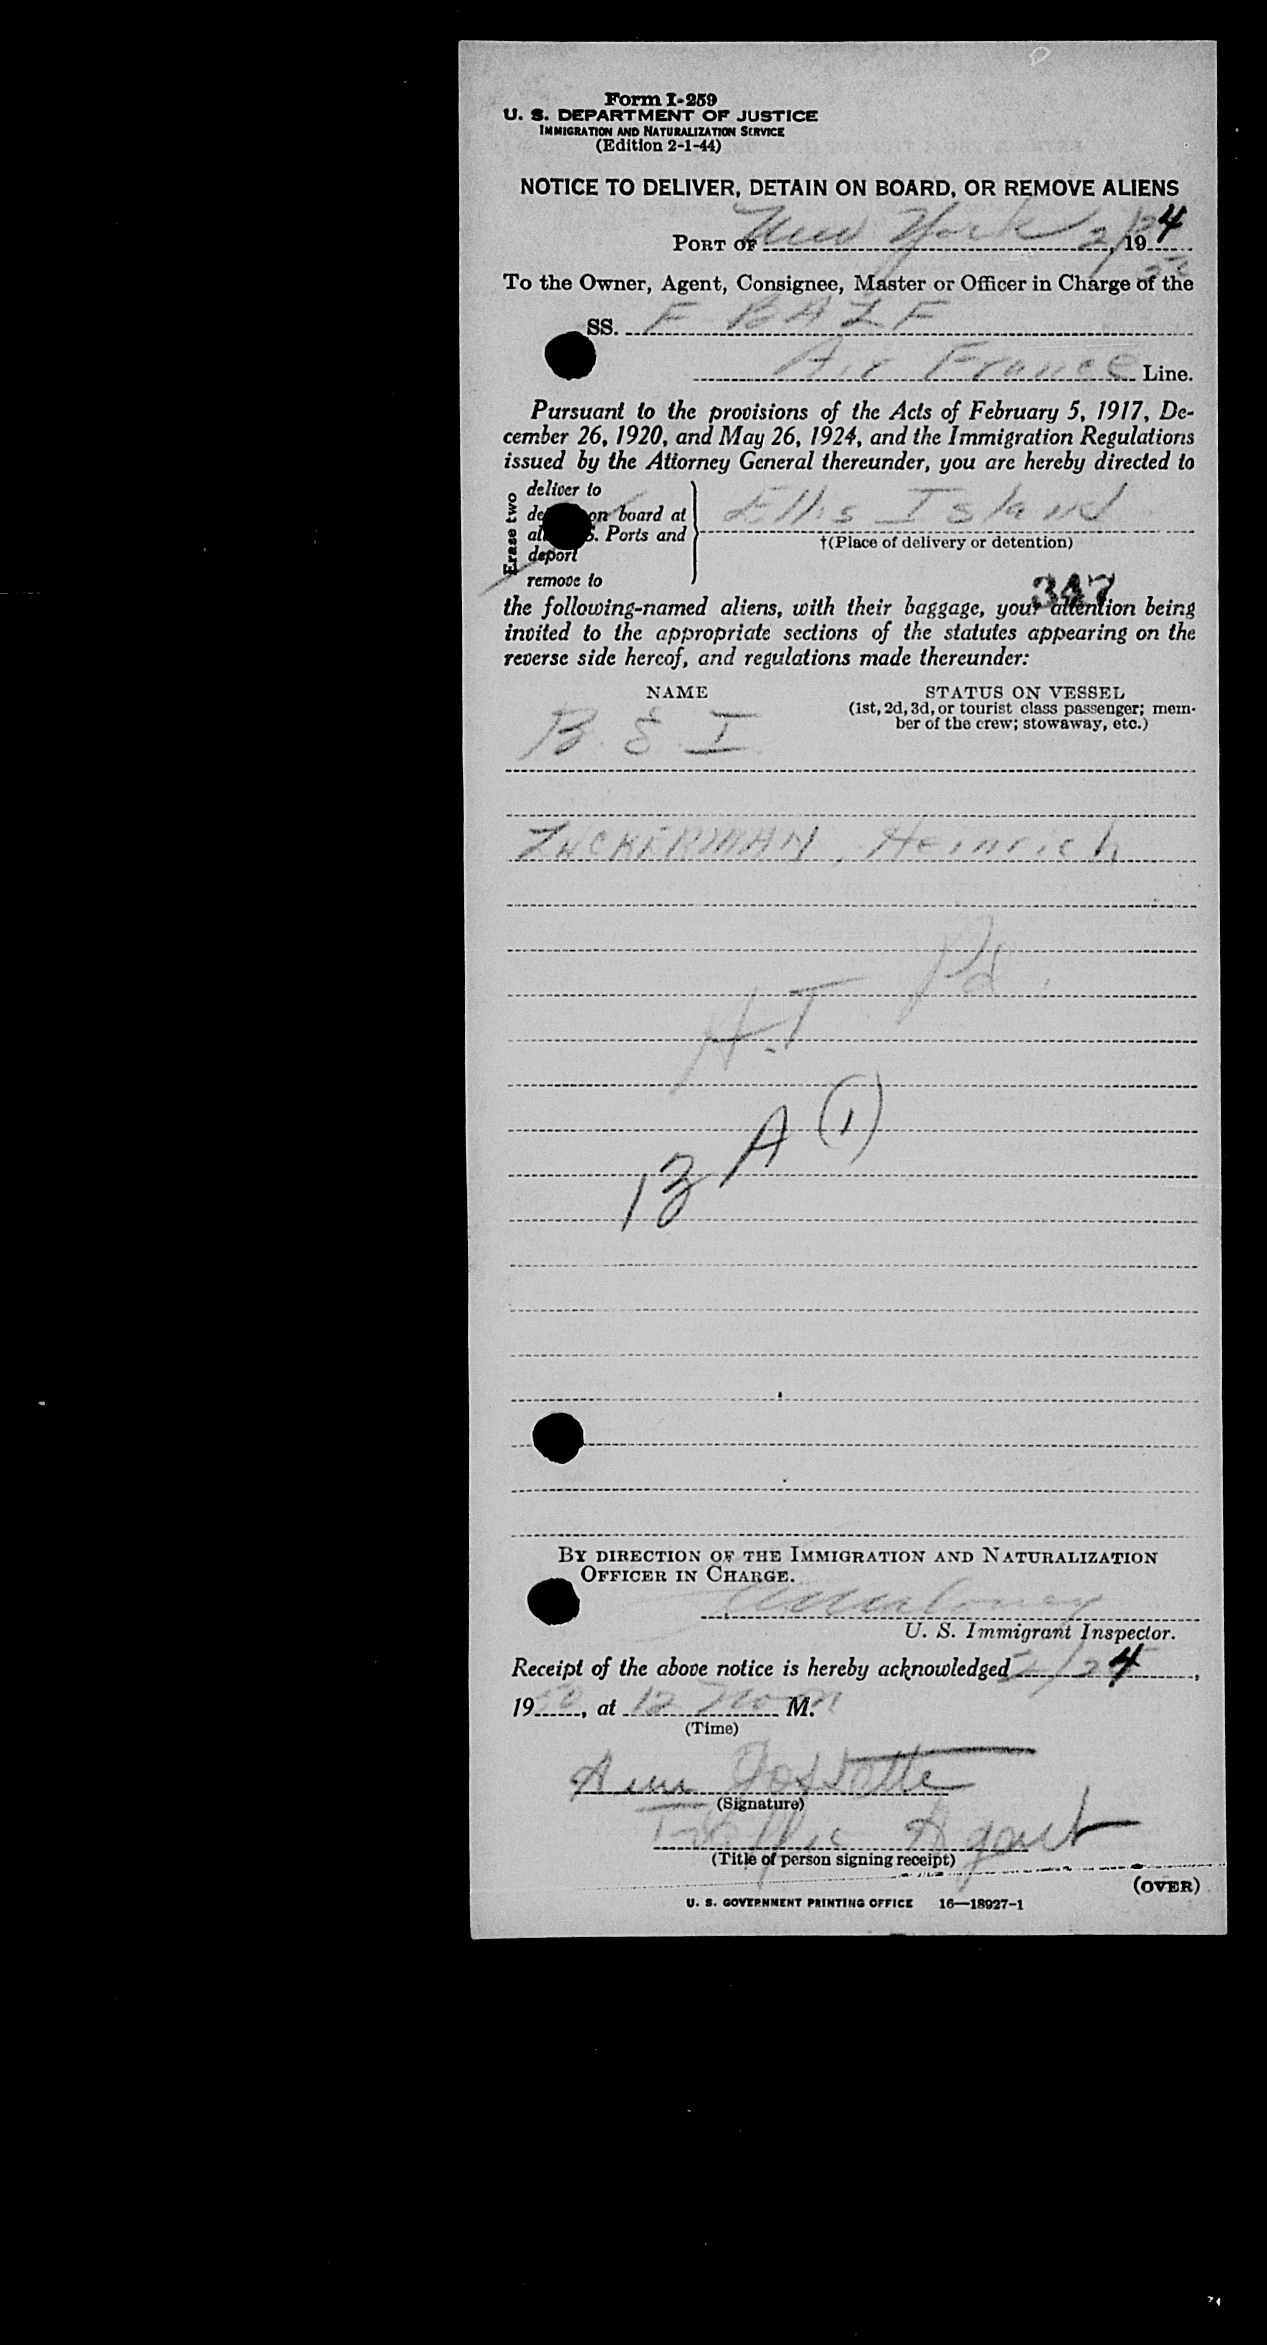 Form I-259
U. S. DEPARTMENT OF JUSTICE
IMMIGRATION AND NATURALIZATION SERVICE
(Edition 2-1-44)
NOTICE TO DELIVER, DETAIN ON BOARD, OR REMOVE ALIENS
PORT OF New York 2/24, 19
To the Owner, Agent, Consignee, Master or Officer in Charge of the
SS. F BAZF
Air France Line.
Pursuant to the provisions of the Acts of February 5, 1917, De-
cember 26, 1920, and May 26, 1924, and the Immigration Regulations
issued by the Attorney General thereunder, you are hereby directed to
Erase two
deliver to
on board at
Ports and
deport
remove to
Ellis Island
†(Place of delivery or detention)
347
the following-named aliens, with their baggage, your attention being
invited to the appropriate sections of the statutes appearing on the
reverse side hereof, and regulations made thereunder:
NAME STATUS ON VESSEL
(1st, 2d, 3d, or tourist class passenger; mem-
ber of the crew; stowaway, etc.)
B & I
ZUCKERMAN, Heinrich
Pd.
H.T
13 A (1)
BY DIRECTION OF THE IMMIGRATION AND NATURALIZATION
OFFICER IN CHARGE.
U. S. Immigrant Inspector.
Receipt of the above notice is hereby acknowledged 2/24,
1950, at 12 Noon M.
(Time)
(Signature)
Traffic Agent
(Title of person signing receipt)
(OVER)
U. S. GOVERNMENT PRINTING OFFICE 16—18927-1